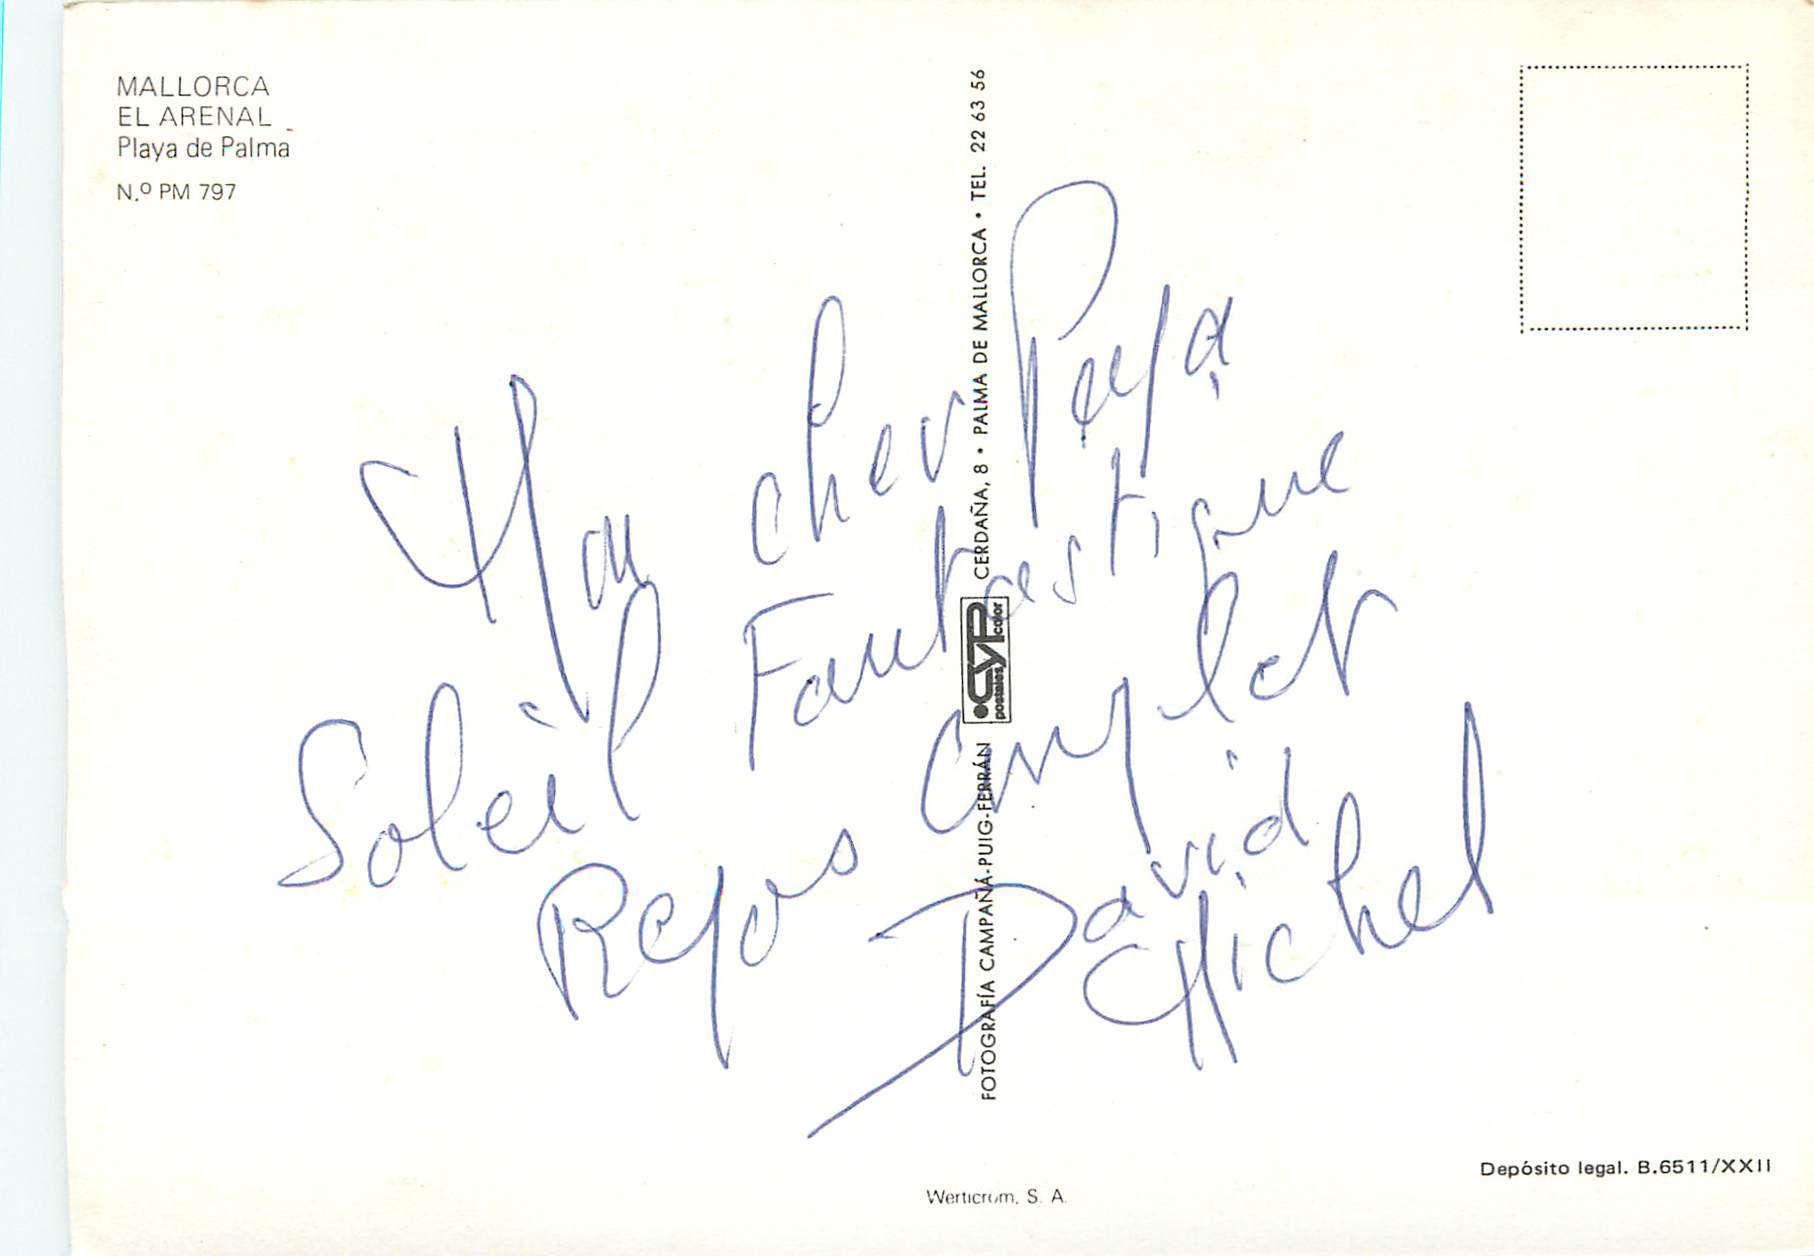 MALLORCA
EL ARENAL
Playa de Palma
N.º PM 797
Mon cher Papa,
Soleil Fantastique
Repos Complet
David
Michel
FOTOGRAFÍA CAMPAÑÁ-PUIG-FERRÁN postales CYP color CERDAÑA, 8 • PALMA DE MALLORCA • TEL. 22 63 56
Depósito legal. B.6511/XXII
Werticrom, S. A.